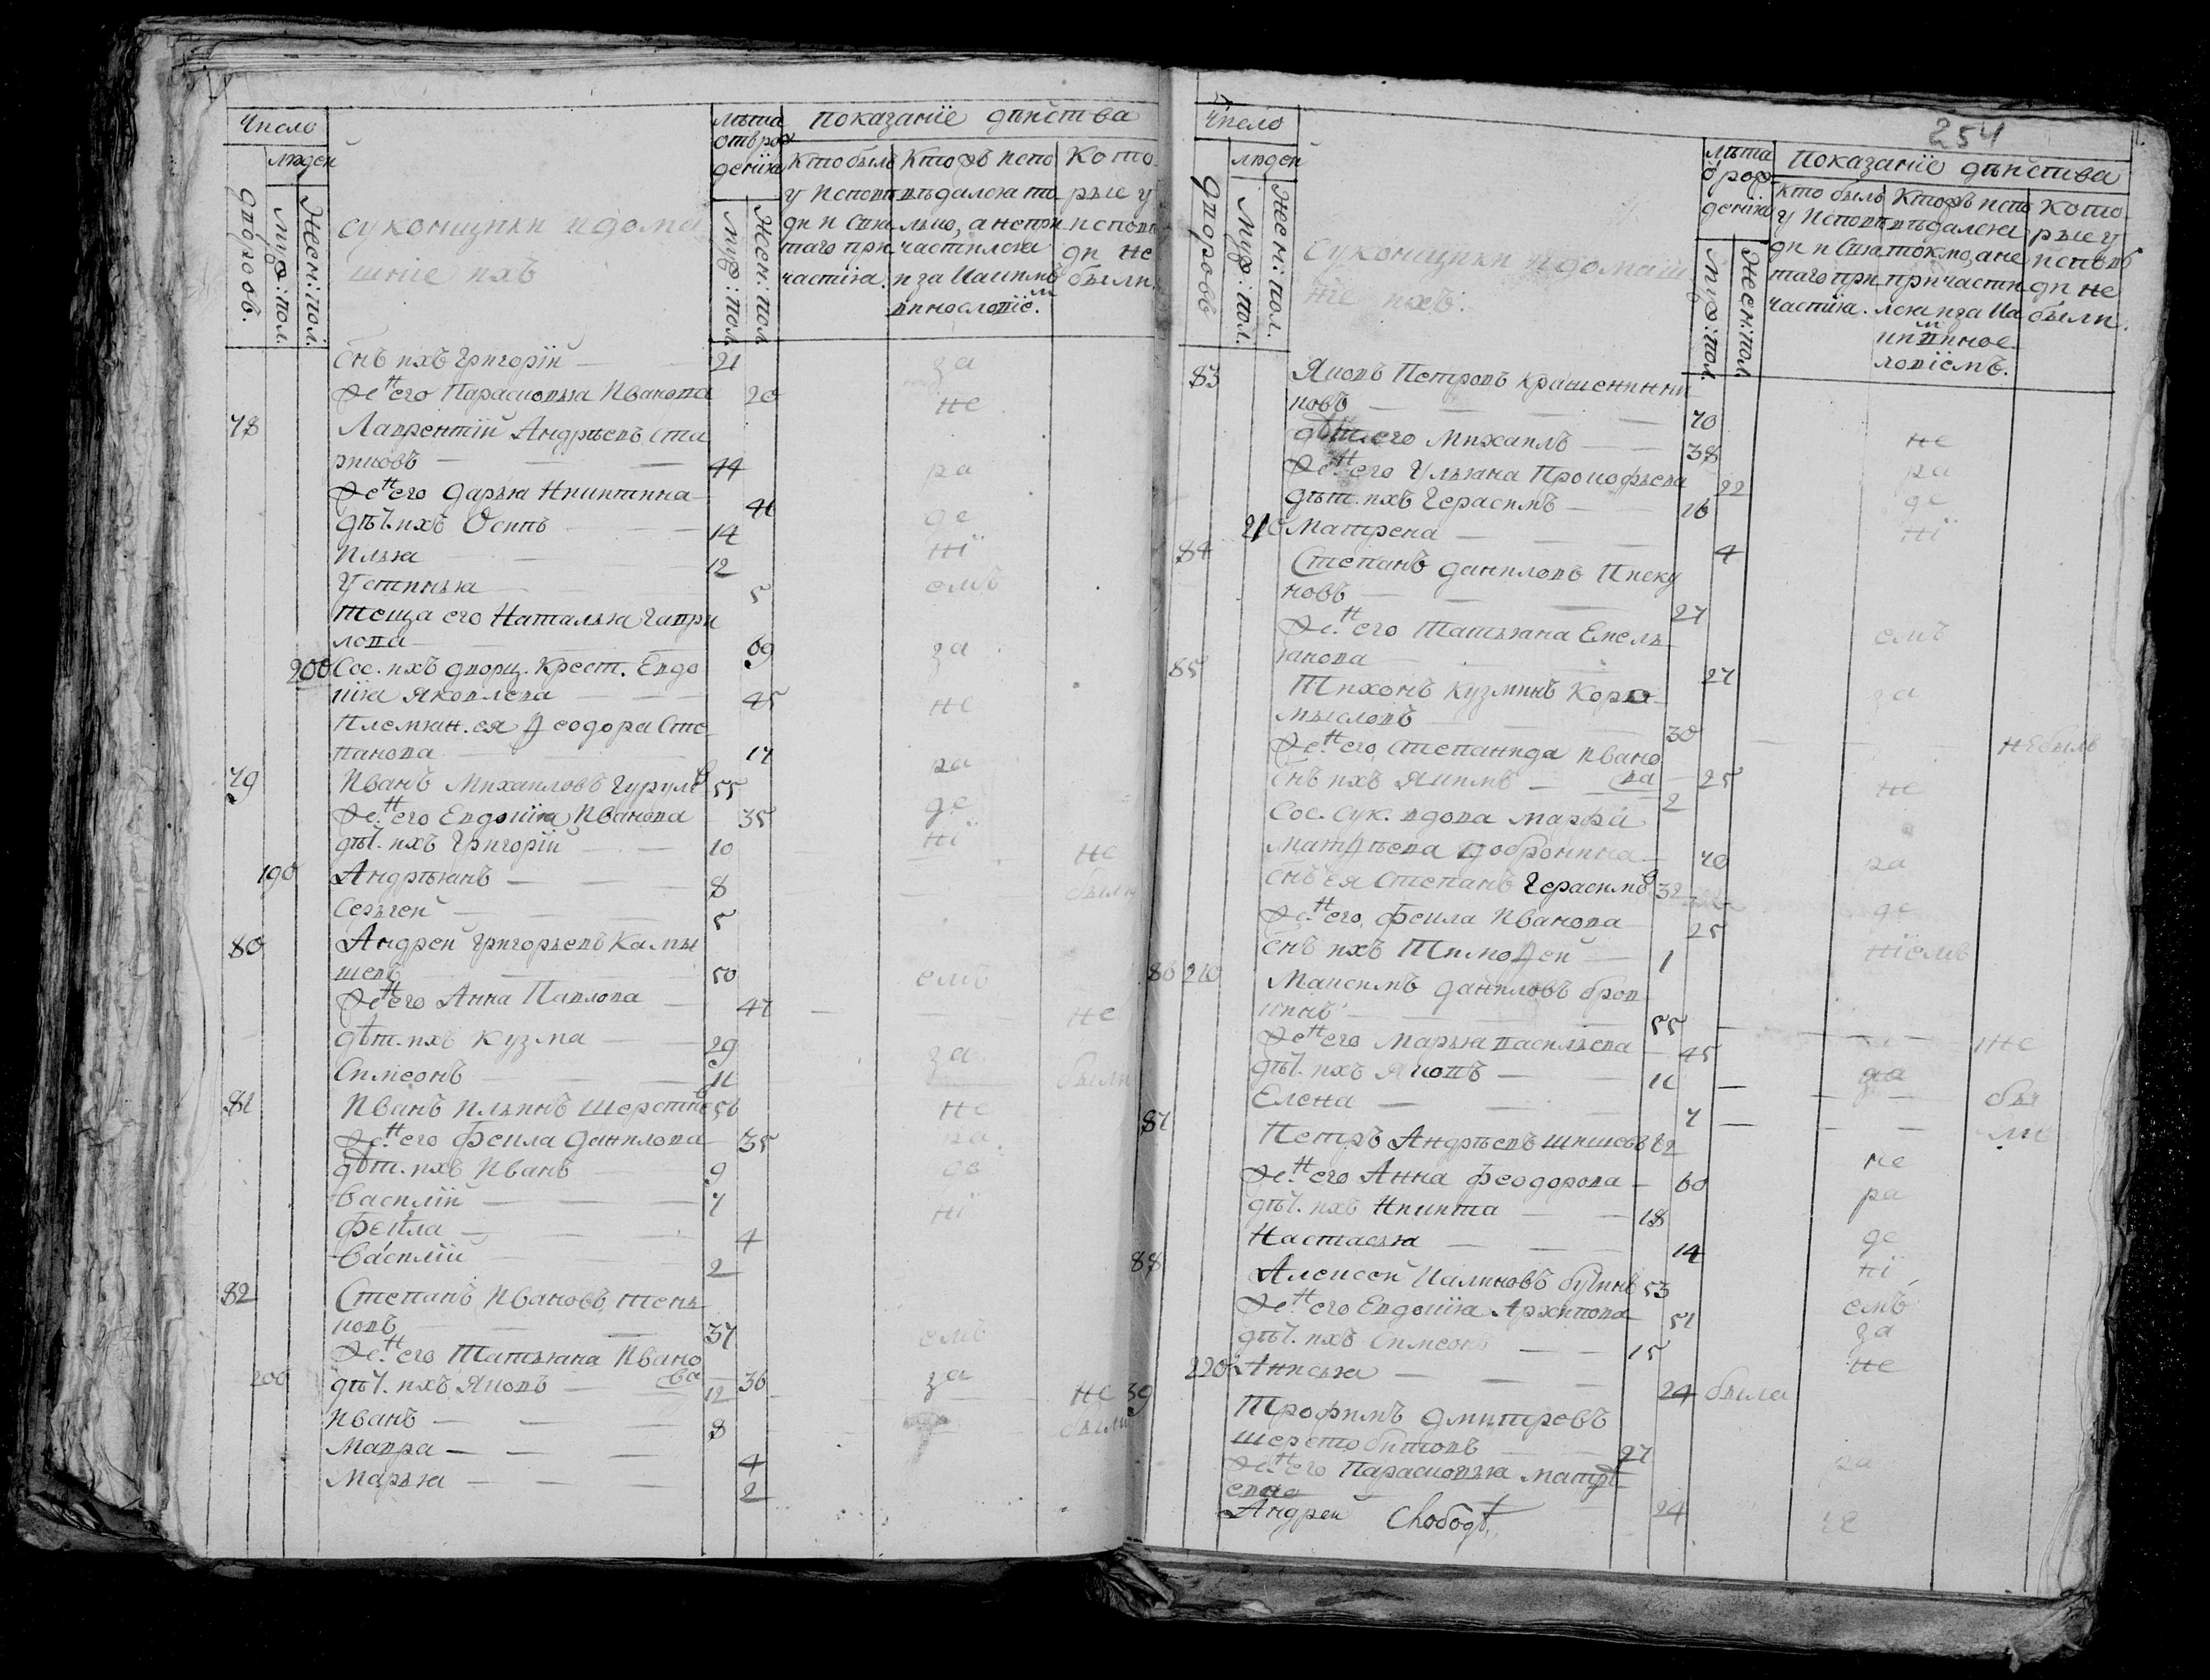 Число
людей
дворовъ.
Муж: пол.
Жен: пол.
суконщики и дома
шніе ихъ
лѣта
отврож
денія
Муж: пол.
Жен: пол.
показаніе дѣйства
Кто былъ
у испове
ди и свя
таго при
частія.
Кто жъ испо
вѣдался то
лько, а непри
частился
и за каимъ
винословіем.
Кото
рые у
испове
ди не
были.
снъ ихъ Григорій 21
жен его Парасковья Иванова 20
78 Лаврентій Андрѣевъ Ста
риковъ 44
жен его Дарья Никитина 41
дѣт. ихъ Осипъ 14
Илья 12
Устинья 5
теща его Наталья Гаври
лова 69
200 Сос. ихъ дворц. крест. Евдо
кія Яковлева 45
племян. ея Ѳеодора Сте
панова 17
79 Иванъ Михаиловъ Гурулв 55
жен его Евдокія Иванова 35
дѣт. ихъ Григорій 10
190 Андрѣянъ 8
Сергей 5
80 Андрей Григорьевъ Камы
шевъ 50
жен его Анна Павлова 47
дѣт. ихъ Кузма 29
Симеонъ 11
81 Иванъ Ильинъ Шерстнв 56
жен его Фекла Данилова 35
дѣт. ихъ Иванъ 9
Василій 7
Фекла 4
Василій 2
82 Степанъ Ивановъ Тень
ковъ 37
жен его Татьяна Ивано
ва 36
200 дѣт. ихъ Яковъ 12
Иванъ 8
Мавра 4
Марья 2
за
не
ра
де
ні
емъ
за
не
ра
де
ні
не
были
емъ
не
за
были
не
ра
де
ні
емъ
за
не
были
254
Число
людей
дворовъ
Муж: пол.
Жен: пол.
суконщики и домаш
ніе ихъ.
лѣта
ѿ рож
денія
Муж: пол.
Жен: пол.
показаніе дѣйства
кто былъ
у испове
ди и свя
таго при
частія.
Кто жъ испо
вѣдался
токмо, а не
причасти
лся и за ка
кимъ винос
ловіемъ.
кото
рые у
исповѣ
ди не
были.
83 Яковъ Петровъ Крашенинни
ковъ 70
дѣт. его Михаилъ 38
жен его Ульяна Прокофьева 22
дѣт. ихъ Герасимъ 16
210 Матрена 4
84 Степанъ Даниловъ Писку
новъ 27
жен его Татьяна Емель
янова 27
85 Тихонъ Кузминъ Коро
мысловъ 30
жен его Степанида Ивано
ва 25
снъ ихъ Якимъ 2
Сос. сук. вдова Марфа
Матѳѣева Добронина 70
снъ ея Степанъ Герасимв 32
жен его Фекла Иванова 25
снъ ихъ Тимоѳей 1
86 210 Максимъ Даниловъ Бров
кинъ 55
жен его Марья Васильева 45
дѣт. ихъ Яковъ 11
Елена 7
87 Петръ Андрѣевъ Шишовъ 62
жен его Анна Феодорова 60
дѣт. ихъ Никита 18
Настасья 14
88 Алексей Калиновъ 53
жен его Евдокія Архипова 51
дѣт. ихъ Симеонъ 15
220 Анисья 24 была
89 Трофимъ Дмитревъ
Шерстобитовъ 27
жен его Парасковья Матѳѣ
евна 24
не
ра
де
ні
емъ
за
небылъ
не
ра
де
ніемъ
не
за
бы
ли
не
ра
де
ні
емъ
за
не
ра
че
Андрей Слободѣ